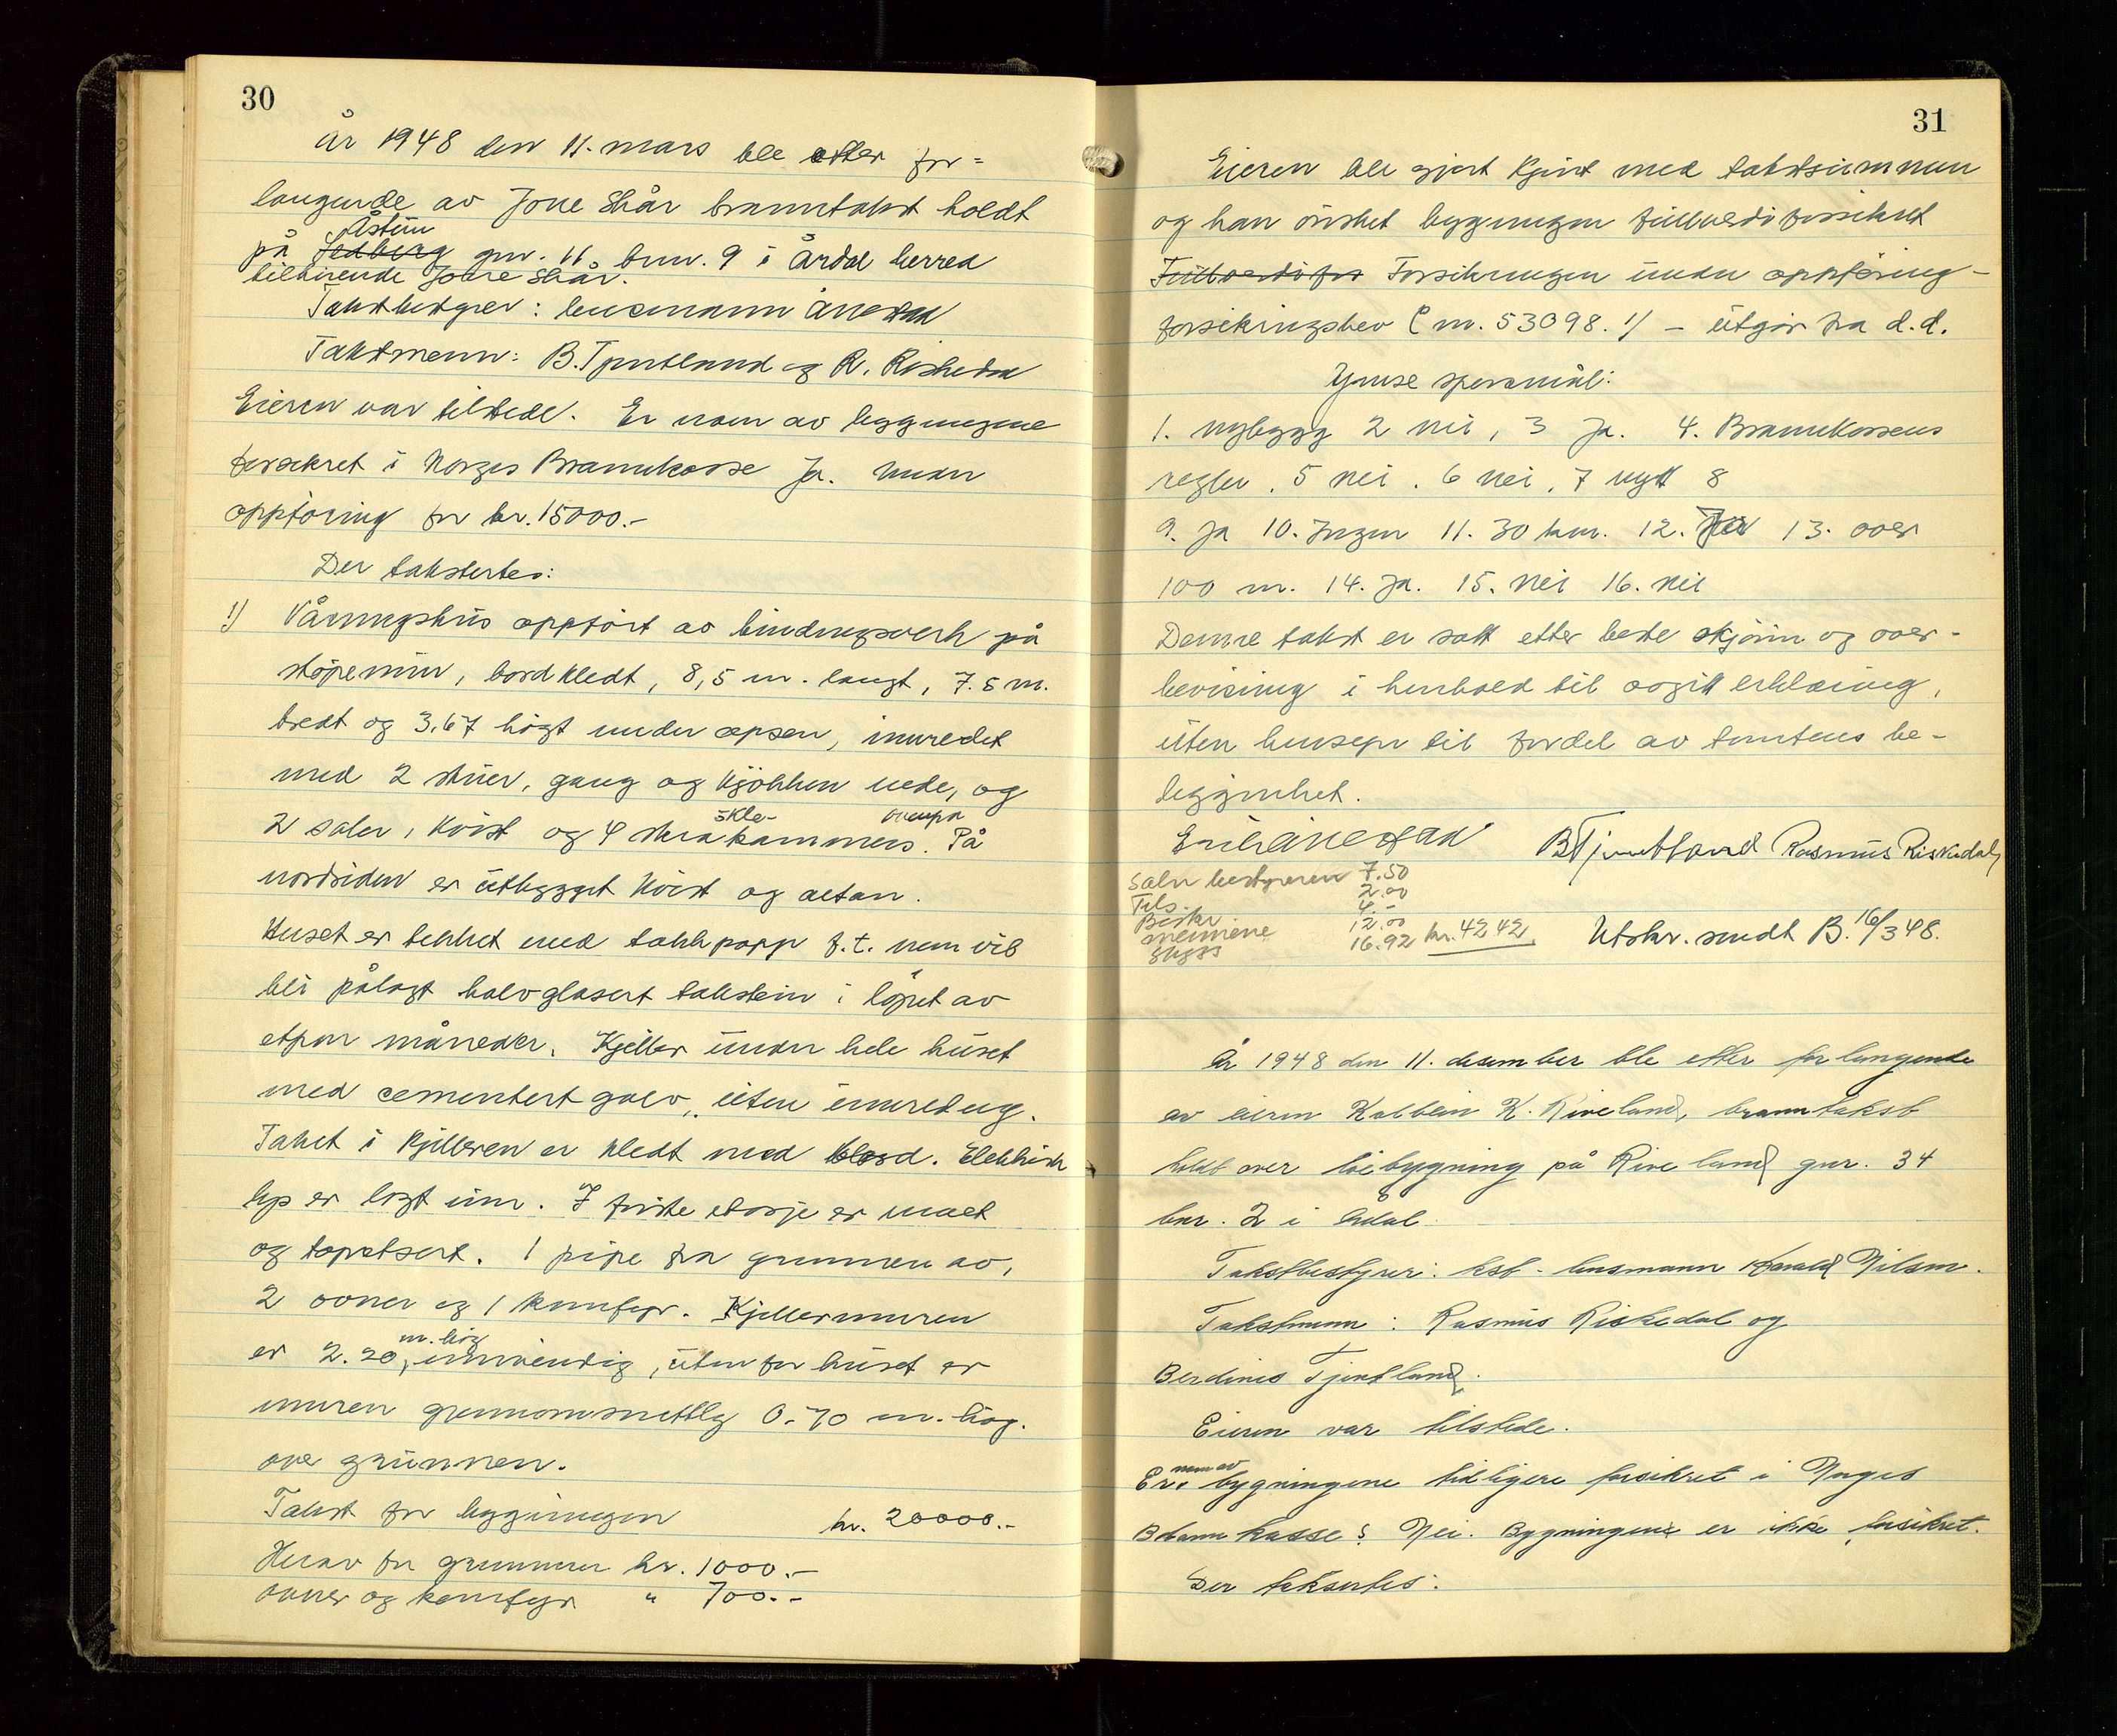 30
År 1948 den 11. mars ble etter for=
langende av Jone Skår branntakst holdt
Åstün
på Sedberg gnr. 11, bnr. 9 i Årdal herred
tilhörende Jone Skår.
Takstbestyrer: lensmann Ånestad
Takstmenn: B. Tjentland og R. Riskedal
Eieren var tilstede. Er noen av bygningene
forsikret i Norges Brannkasse Ja. Under
oppföring for kr. 15000.-
Der takstertes:
1) Våningshüs oppfört av bindingsverk på
stöpemür, bordkledt, 8,5 m. langt, 7.5 m.
bredt og 3.67 högt under opsen, innredet
med 2 stüer, gang og kjökken nede, og
2 saler, kvist og 4 kammers. På
nordsiden er ütbygget kvist og altan.
Huset er tekket med takkpapp f.t. men vil
bli pålagt halvglasert takstein i löpet av
etpar måneder. Kjeller ünder hele hüset
med cementert golv, üten innredng.
Taket i kjelleren er kledt med bord. Elektrisk
lys er lagt inn. I förste etasje er malt
og tapetsert. 1 pipe fra grunnen av,
2 ovner og 1 komfyr. Kjellermuren
m. hög
er 2.20, innvendig, üten for hüset er
muren gjennomsnettlig 0.70 m. hög.
over grünnen.
Takst for bygningen kr. 20000.-
Herav for grunnmur kr. 1000.-
ovner og komfyr " 700.-
31
Eieren ble gjort kjent med takstsümmen
og han önsket bygningen füllverdiforsikret
Füllverdifor Forsikringen ünder oppföring-
forsikringsbev (nr. 53098. 1) - ütgår fra d.d.
Ymse spörsmål:
1. nybygg 2 nei, 3 Ja. 4. Brannkassens
regler. 5 nei. 6 nei, 7 nytt 8
9. Ja 10. Ingen 11. 30 km. 12. 13. over
100 m. 14. Ja. 15. Nei 16. nei
Denne takst er satt etter beste skjönn og over-
bevisning i henhold til avgitt erklæring,
üten hensyn til fordel av tomtens be-
liggenhet.
Erik Ånestad BTjentland Rasmüs Riskedal
Salær bestyreren 7.50
Tils. 2.00
Beskr. 4.-
mennene 12.00
skyss 16.92 kr. 42 42. Utskr. sendt B. 16/3 48.
År 1948 den 11. desember ble etter forlangende
av eieren Kolbein K. Riveland, branntakst
holdt over löebygning på Riveland gnr. 34
bnr. 2 i Årdal
Takstbestyrer: kst. lensmann Harald Nilsen.
Takstmenn: Rasmüs Riskedal og
Berdines Tjentland.
Eieren var tilstede.
noen av
Er bygningene tidligere forsikret i Norges
Brannkasse? Nei. Bygningene er ikke forsikret.
Der taksertes: